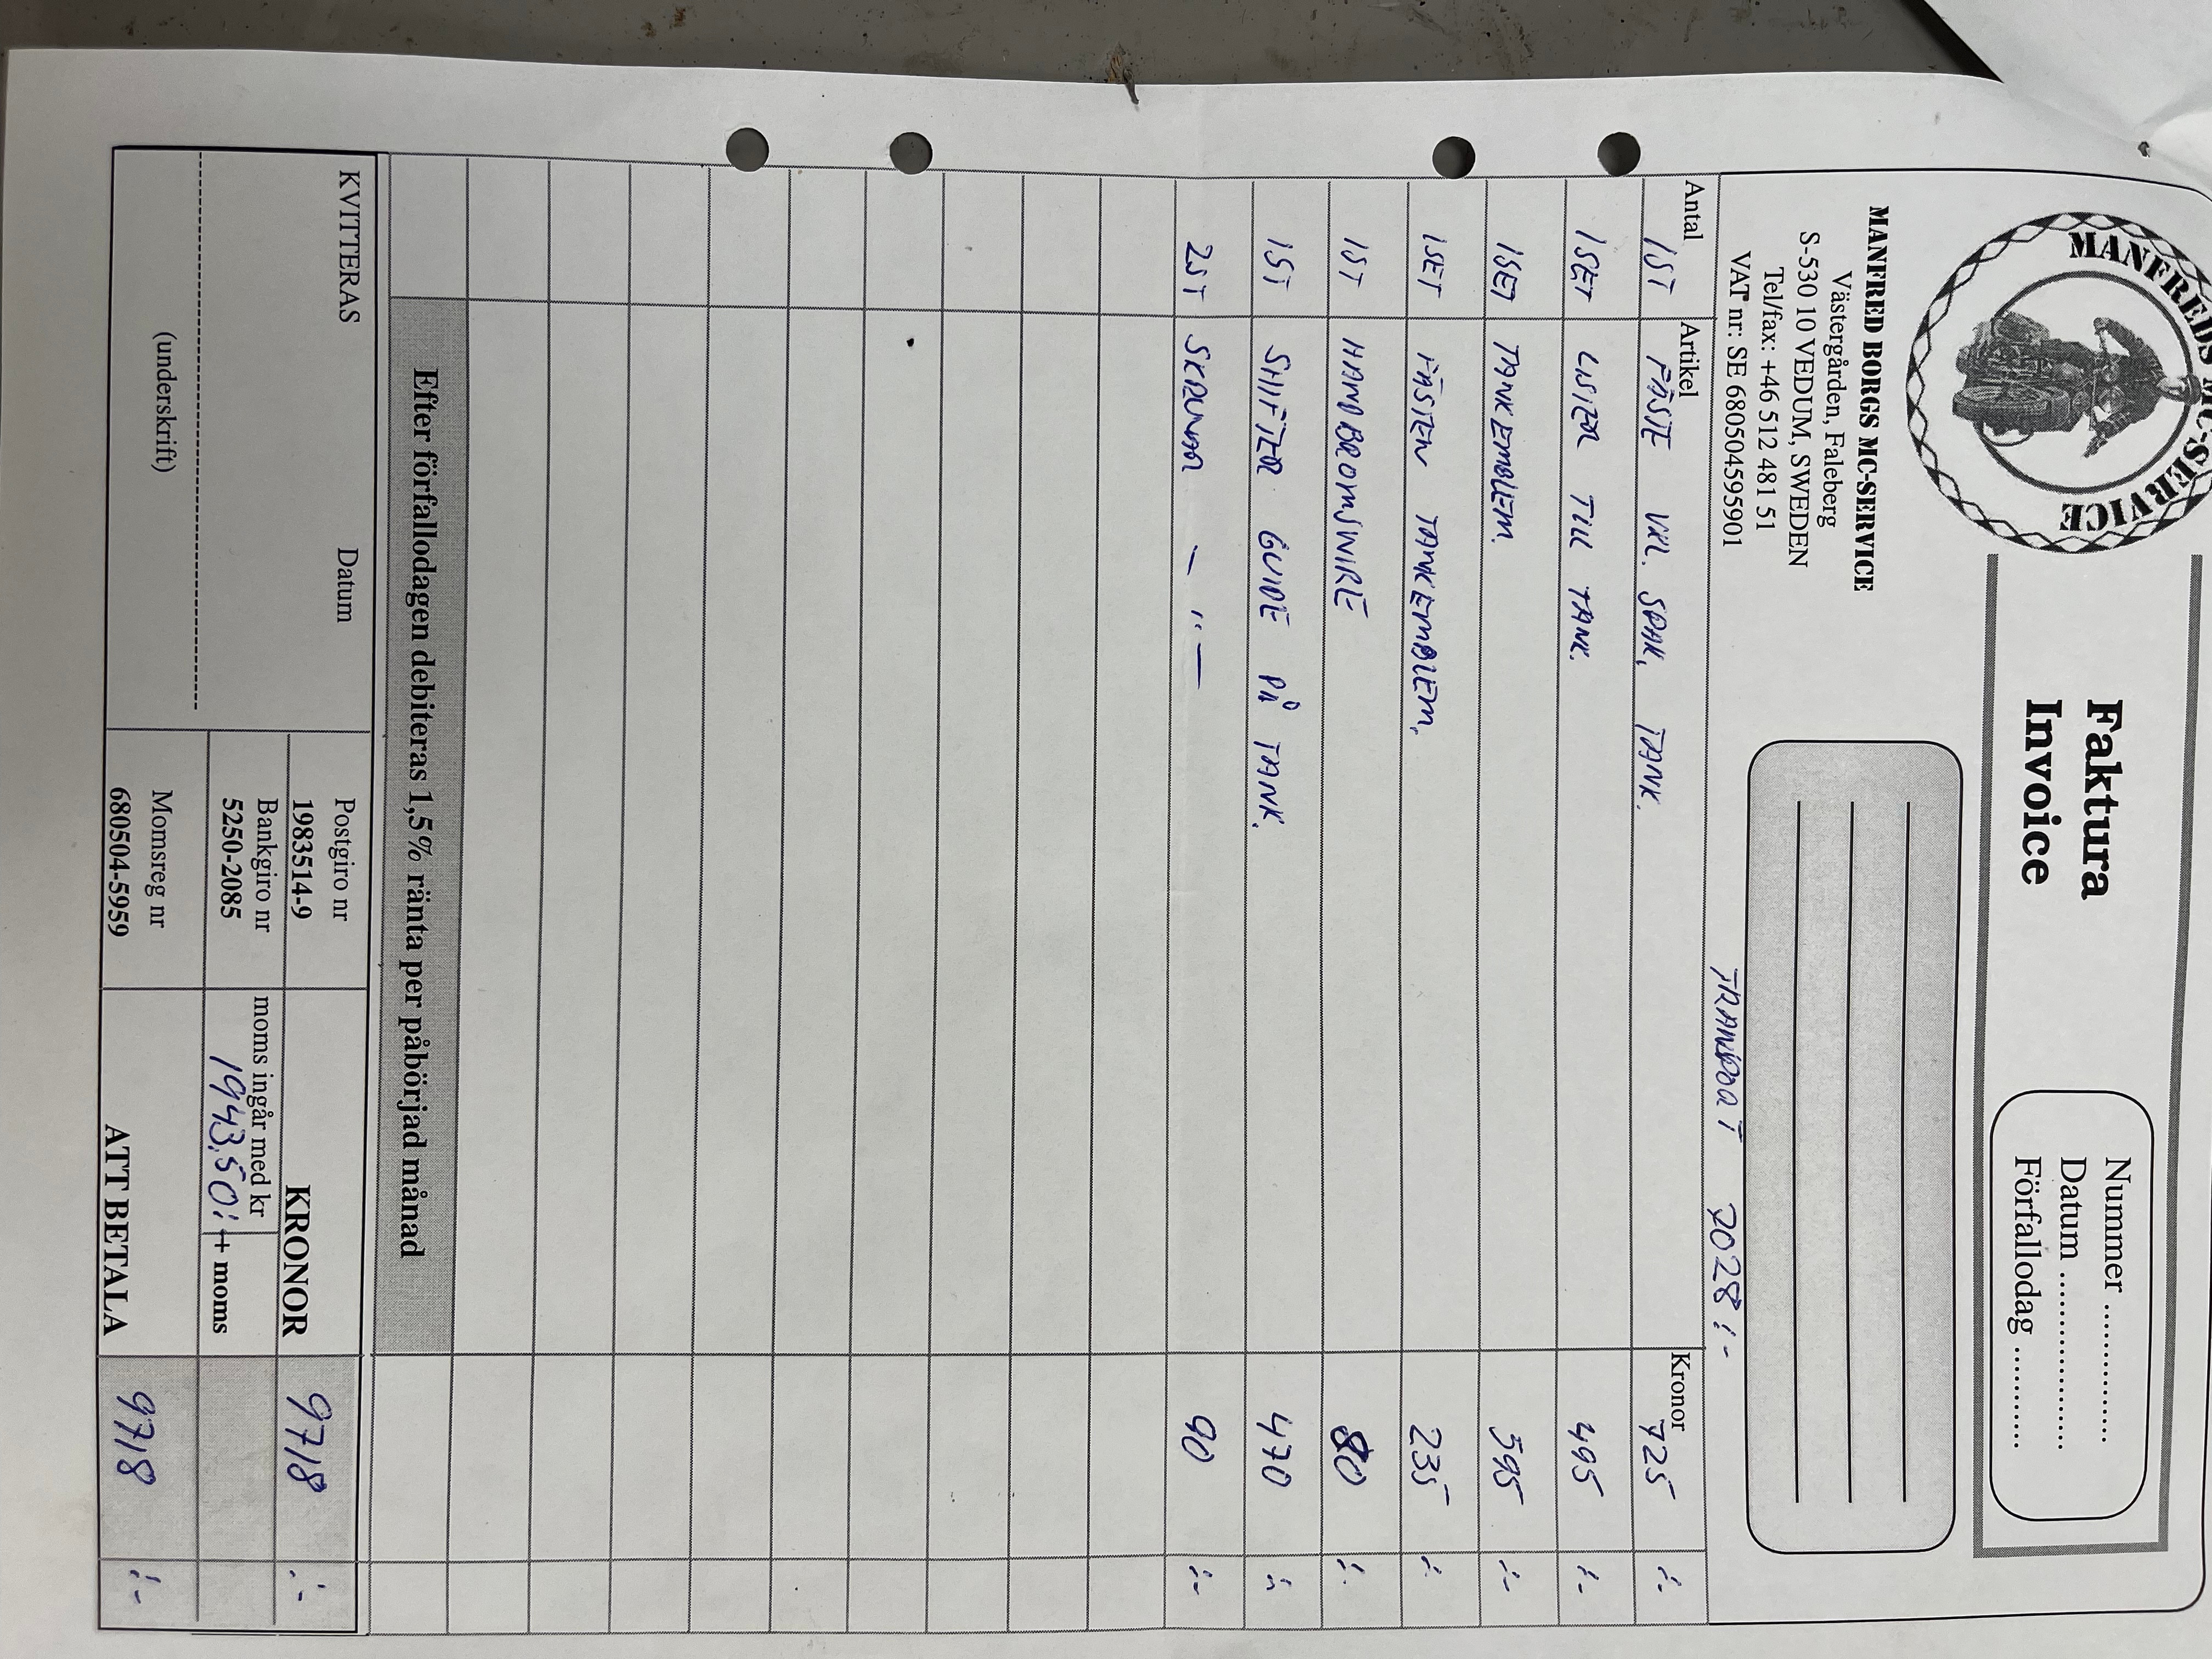 MANFREDS MC-SERVICE
Faktura
Invoice
Nummer ...............
Datum ...................
Förfallodag ..........
MANFRED BORGS MC-SERVICE
Västergården, Faleberg
S-530 10 VEDUM, SWEDEN
Tel/fax: +46 512 481 51
VAT nr: SE 680504595901
TRANSPORT 7028:-
Antal Artikel Kronor
1ST FÄSTE VXL. SPAK, TANK. 725 :-
1SET LISTER TILL TANK. 495 :-
1SET TANKEMBLEM. 595 :-
1SET FÄSTEN TANKEMBLEM. 235 :-
1ST HANDBROMSWIRE 80 :-
1ST SHIFTER GUIDE PÅ TANK. 470 :-
2ST SKRUVAR — " — 90 :-
Efter förfallodagen debiteras 1,5% ränta per påbörjad månad
KVITTERAS Datum
(underskrift)
Postgiro nr
1983514-9
Bankgiro nr
5250-2085
Momsreg nr
680504-5959
KRONOR 9718 :-
moms ingår med kr
1943,50:- + moms
ATT BETALA 9718 :-